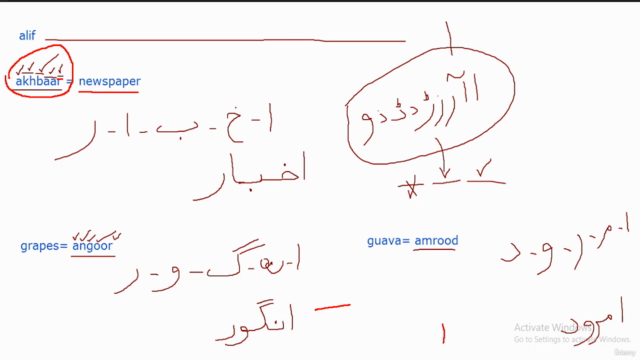 alif
akhbaar = newspaper
ا - خ - ب - ا - ر
اخبار
ا آ ر ز ڑ د ڈ ذ و
grapes= angoor
ا - ن - گ - و - ر
انگور
guava= amrood
ا - م - ر - و - د
امرود
Activate Windows
Go to Settings to activate Windows.
Udemy